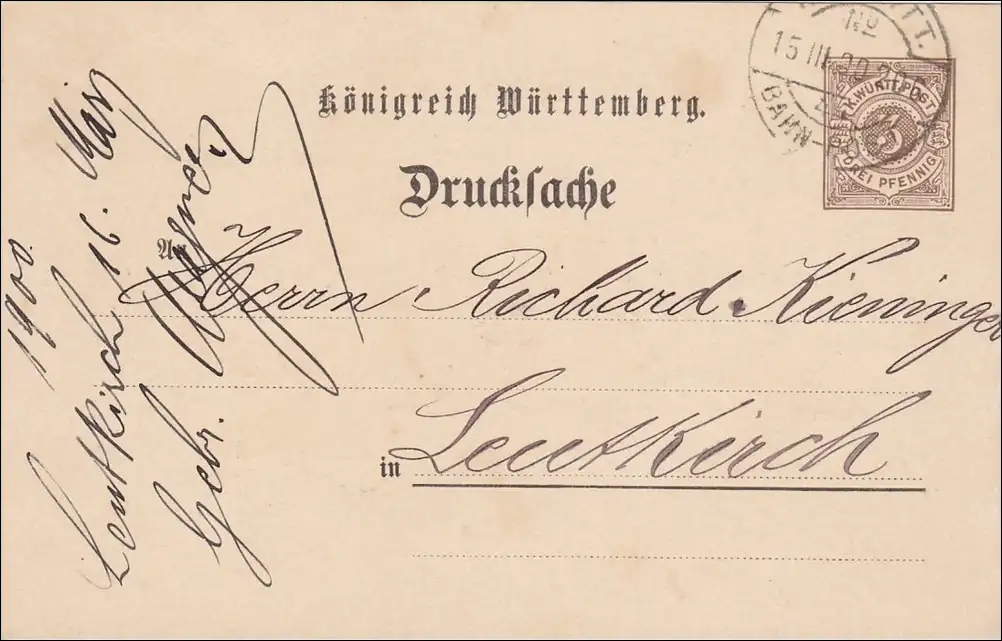 Königreich Württemberg.
Drucksache
An
Herrn Richard Kieninger
in Leutkirch
K. WÜRTT. POST
3
DREI PFENNIG
No
15 III 00
BAHN-
1900.
Leutkirch 16. März
Gebr. Wagner